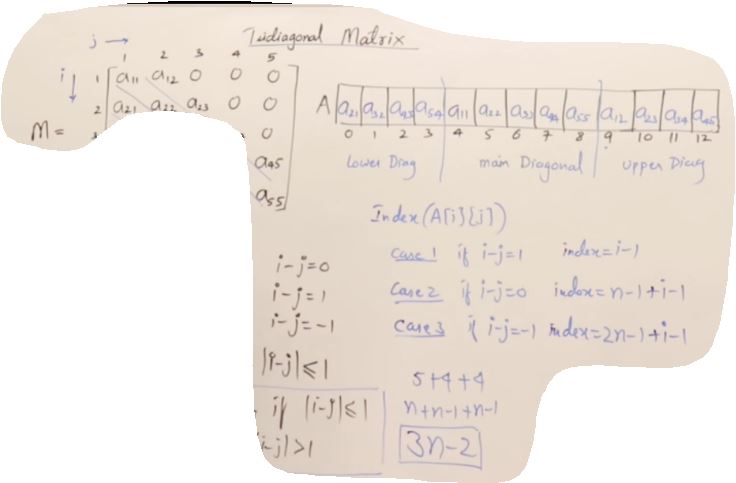 Tridiagonal Matrix
j →
1 2 3 4 5
i ↓ 1 a11 a12 0 0 0
2 a21 a22 a23 0 0
M = 0
a45
a55
A a21 a32 a43 a54 a11 a22 a33 a44 a55 a12 a23 a34 a45
0 1 2 3 4 5 6 7 8 9 10 11 12
Lower Diag main Diagonal upper Diag
Index(A[i][j])
Case 1 if i-j=1 index=i-1
Case 2 if i-j=0 index=n-1+i-1
Case 3 if i-j=-1 index=2n-1+i-1
i-j=0
i-j=1
i-j=-1
|i-j|≤1
if |i-j|≤1
i-j|>1
5+4+4
n+n-1+n-1
3n-2